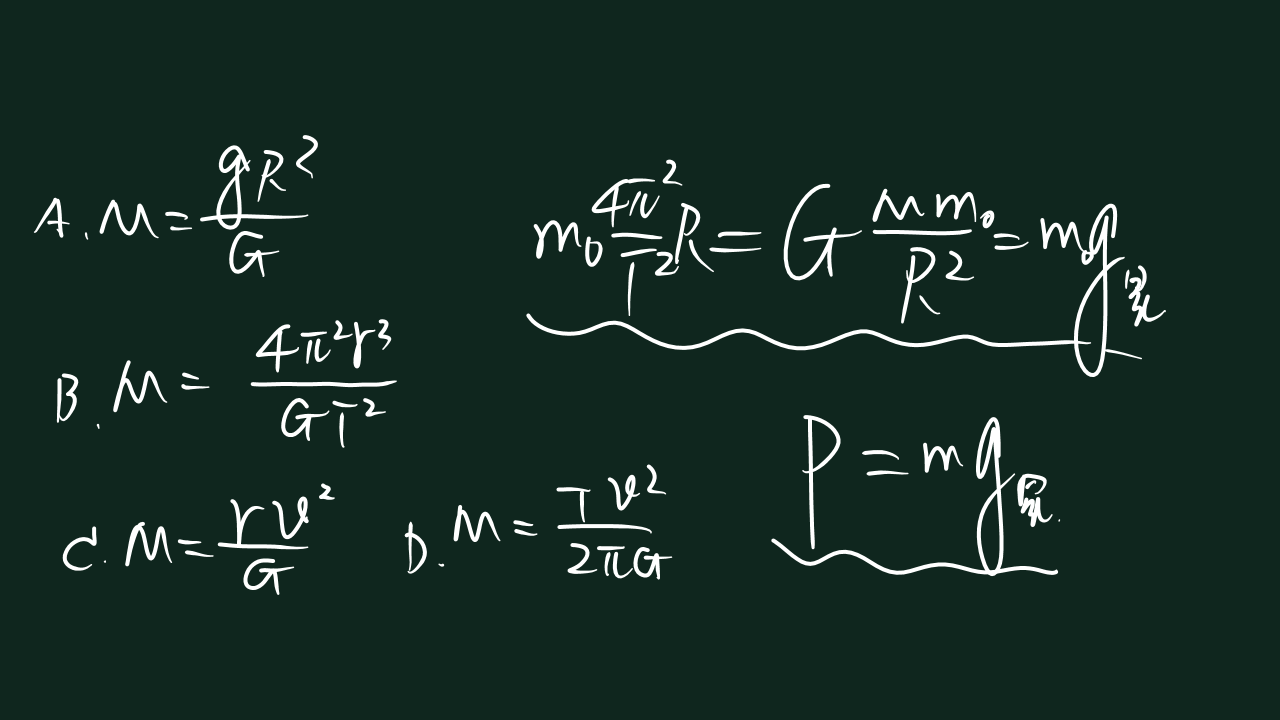 A. M = gR²/G
B. M = 4π²r³/GT²
C. M = rv²/G
D. M = Tv²/2πG
m₀ 4π²/T² R = G Mm₀/R² = m₀g
P = mg